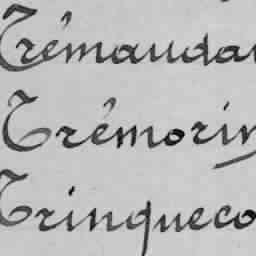 Trémaudan
Trémorin
Trinqueco